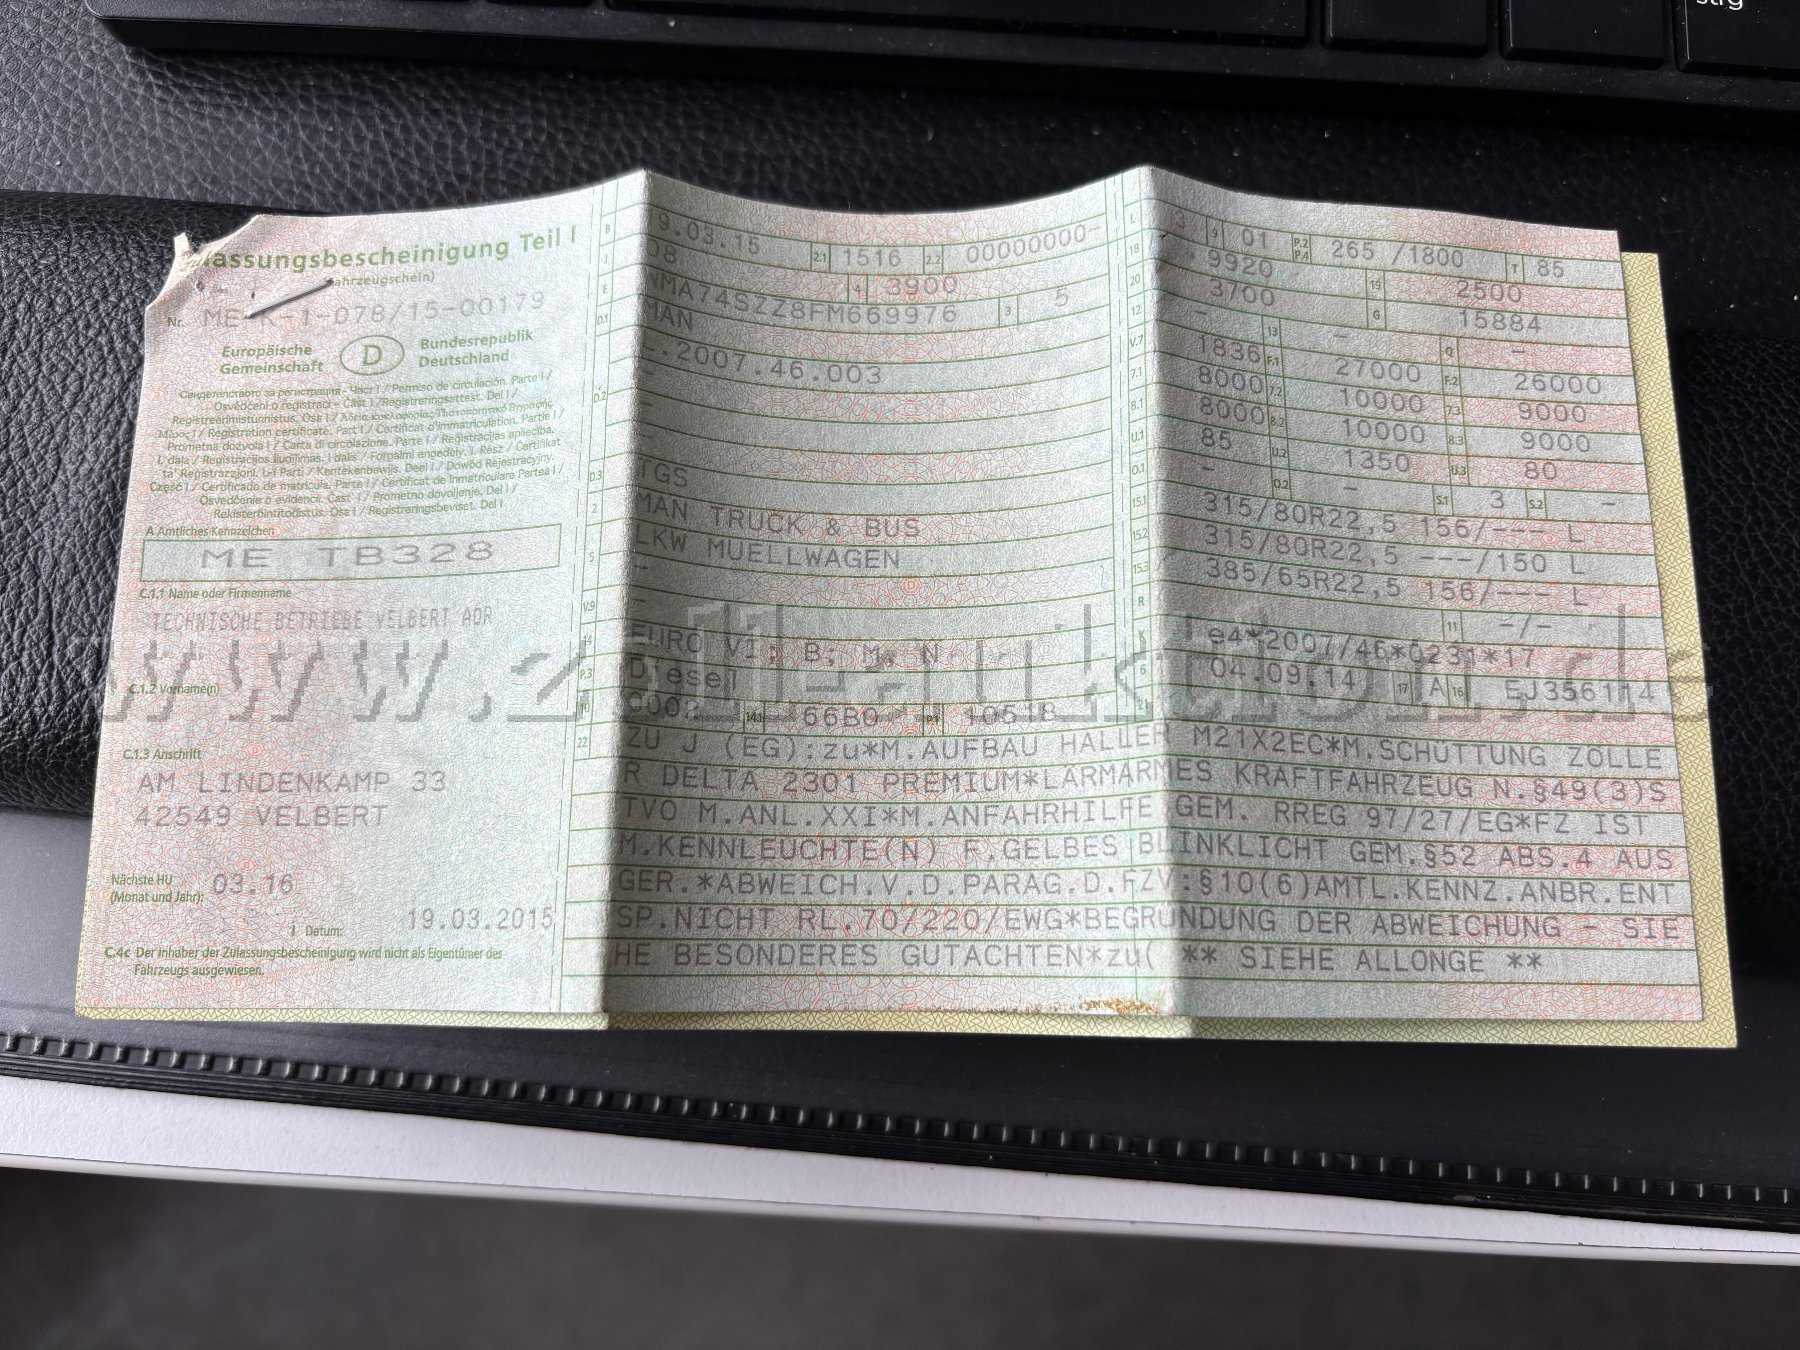 strg
Zulassungsbescheinigung Teil I
(Fahrzeugschein)
Nr. ME-K-1-078/15-00179
Europäische Gemeinschaft
D
Bundesrepublik Deutschland
Osvědčení o registraci - Část I / Registreringsattest. Del I /
Prometna dozvola I / Carta di circolazione. Parte I / Registrācijas apliecība.
Część I / Certificado de matrícula. Parte I / Certificat de înmatriculare Partea I /
Osvedčenie o evidencii. Časť I / Prometno dovoljenje. Del I /
Rekisteröintitodistus. Osa I / Registreringsbeviset. Del I
A Amtliches Kennzeichen
ME TB328
C.1.1 Name oder Firmenname
TECHNISCHE BETRIEBE VELBERT AÖR
C.1.2 Vorname(n)
C.1.3 Anschrift
AM LINDENKAMP 33
42549 VELBERT
Nächste HU
(Monat und Jahr): 03.16
I Datum: 19.03.2015
C.4c Der Inhaber der Zulassungsbescheinigung wird nicht als Eigentümer des
Fahrzeugs ausgewiesen.
B 9.03.15 2.1 1516 2.2 00000000-
J 08 4 3900
E WMA74SZZ8FM669976 3 5
D.1 MAN
-.2007.46.003
D.2 -
-
-
D.3 TGS
2 MAN TRUCK & BUS
5 LKW MUELLWAGEN
-
V.9 -
14 EURO VI; B; M, N
P.3 Diesel
10 0002 14.1 66B0 P.1 10518
L 3 9 01 P.2 P.4 265 /1800 T 85
18 9920 19 2500
20 3700 G 15884
12 - 13 - Q -
V.7 1836 F.1 27000 F.2 26000
7.1 8000 7.2 10000 7.3 9000
8.1 8000 8.2 10000 8.3 9000
U.1 85 U.2 1350 U.3 80
O.1 - O.2 - S.1 3 S.2 -
15.1 315/80R22,5 156/--- L
15.2 315/80R22,5 ---/150 L
15.3 385/65R22,5 156/--- L
R 11 -/-
K e4*2007/46*0231*17
6 04.09.14 17 A 16 EJ356114
21
22 ZU J (EG):zu*M.AUFBAU HALLER M21X2EC*M.SCHÜTTUNG ZOLLE
R DELTA 2301 PREMIUM*LÄRMARMES KRAFTFAHRZEUG N.§49(3)S
TVO M.ANL.XXI*M.ANFAHRHILFE GEM. RREG 97/27/EG*FZ IST
M.KENNLEUCHTE(N) F.GELBES BLINKLICHT GEM.§52 ABS.4 AUS
GER.*ABWEICH.V.D.PARAG.D.FZV:§10(6)AMTL.KENNZ.ANBR.ENT
SP.NICHT RL.70/220/EWG*BEGRÜNDUNG DER ABWEICHUNG - SIE
HE BESONDERES GUTACHTEN*zu( ** SIEHE ALLONGE **
www.zoll-auktion.de